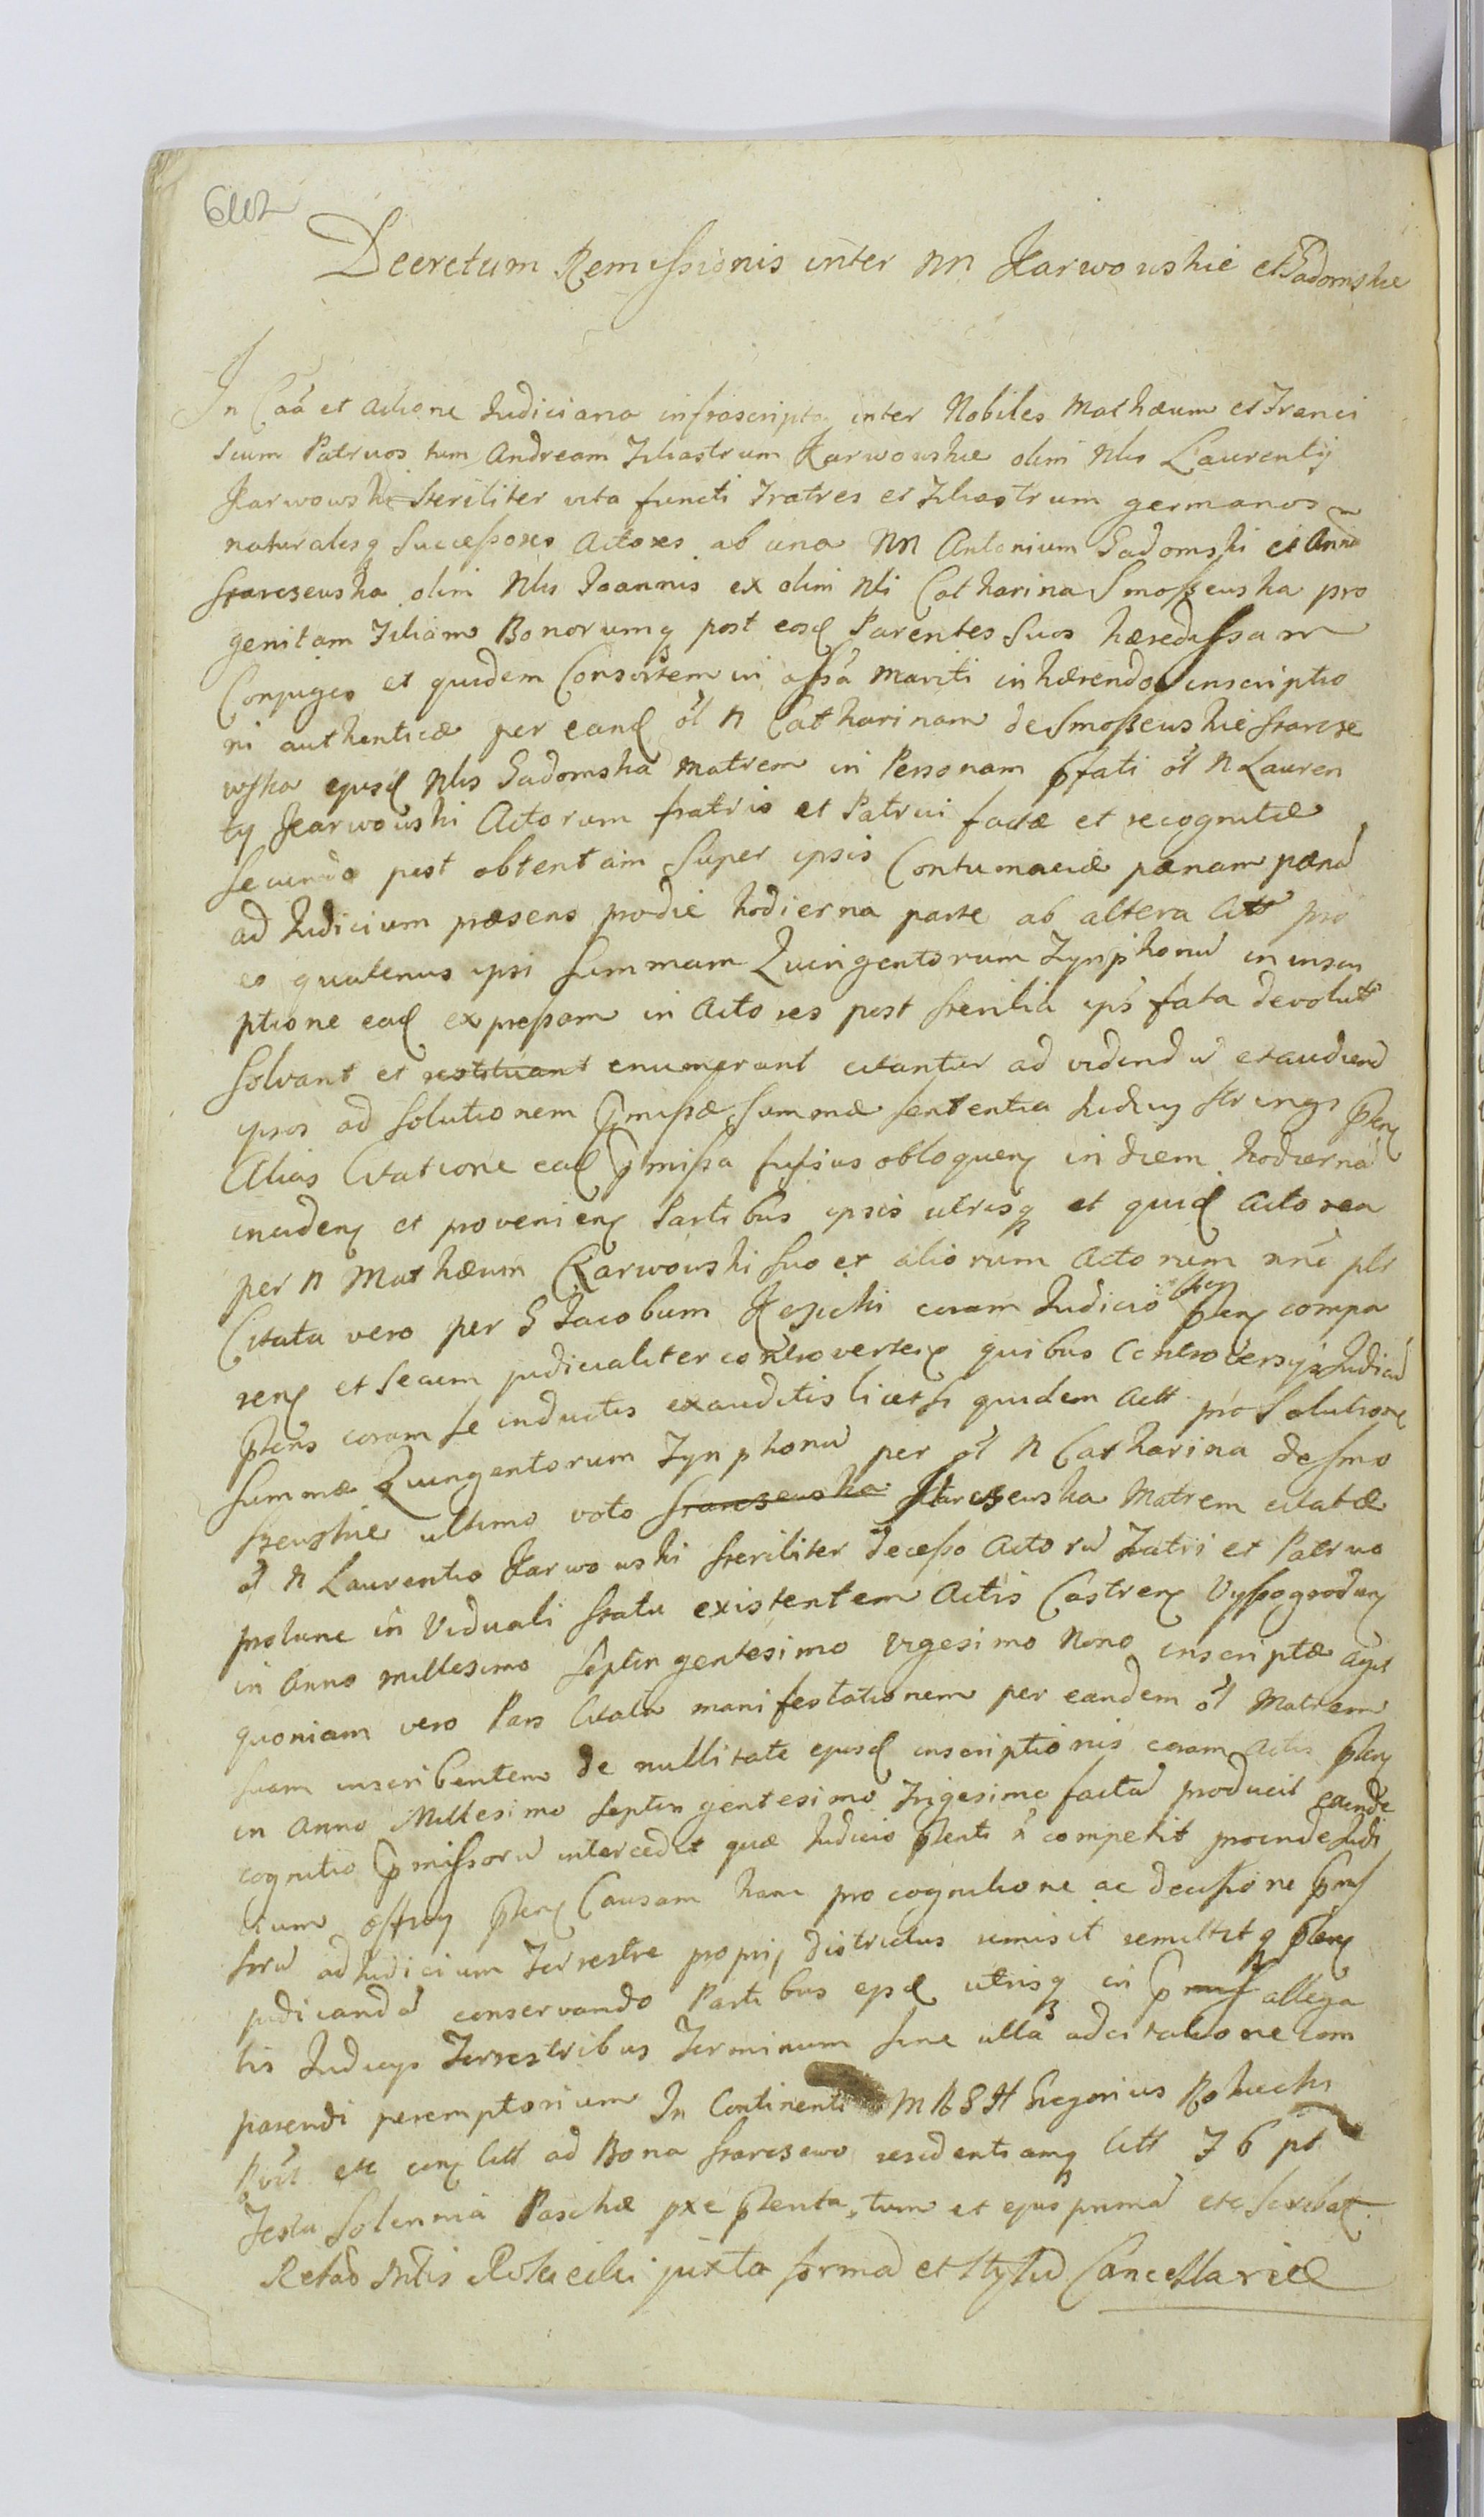 Decretum Remissionis inter NN Karwowskie et Gadomskie
In Caã et actione Iudiciaria infrascripta inter Nobiles Mathæum et Franci
scum Patruos tum Andream Filiastrum Karwowskie olim Nlis Laurentij
Karwowski steriliter vita functi Fratres et Filiastrum germanos
naturalesq Successores Actores ab una NN Antonium Gadomski et Anna
Starczewska olim Nlis Ioannis ex olim Nli Catharina Smoszewska pro
genitam Filiam Bonorumq post eosd Parentes suos hæredissam
Conjuges et quidem Consortem in assã mariti inhærendo inscriptio
ni authenticæ per eand ol N Catharinam de Smoszewskie Starcze
wska ejusd Nlis Gadomska Matrem in Personam pfati ol N Lauren
tij Karwowski Actorum fratris et Patrui factæ et recognitæ
Secundo post obtentam super ipsis Contumaciæ pænam pænd
ad Iudicium præsens pro die hodierna parte ab altera Citt pro
eo quatenus ipsi summam Quingentorum Tynphonũ in inscri
ptione ead expressam in Actores post sterilia ips fata devolut
solvant et restituant enumerant citantur ad vidend et audiend
ipsos ad solutionem pmissæ summæ sententia Iudicij stringi pten
Alias Citatione ead pmissa fusius obloquen in diem hodierna
inciden et provenien Partibus ipsis utrisq et quid Actorea
per N Mathæum Karwowski suo et aliorum Actorum nne plr
Citata vero per G Iacobum Kesicki coram Iudicio pten compa
ren et secum judicialiter controverten quibus Controversijs Iudiciũ
ptens coram se inductis exauditis licet si quidem Act pro solutione
summæ Quingentorum Tynphonũ per ol N Catharina de Smo
szewskie ultimo voto Starczewska Starczewska Matrem citatæ
ol N Laurentio Karwowski steriliter decesso Actorũ Fratri et Patruo
protunc in Viduali statu existentem Actis Castren Vyssogroden
in Anno Millesimo Septingentesimo Vigesimo Nono inscriptæ agit
quoniam vero Pars Citata manifestationem per eandem ol Matrem
suam inscribentem de nullitate ejusd inscriptionis coram Actis pten
in Anno Millesimo Septingentesimo Trigesimo factã producit eainde
cognitio pmissorũ intercedit quæ Iudicio ptenti ñ competit proinde Iudi
cium Offcij pten Causam hanc pro cognitione ac decisione pmis
sorũ ad Iudicium Terrestre proprij districtus remisit remittitq pten
judicandã conservando Partibus epd utrisq in allega
tis Iudicijs Terrestribus Terminum sine ulla adcitatione com
parendi peremptorium In Continenti M R G H Gregorius Rokicki
etc litt ad Bona Starczewo residentiamq litt F 6 pt
Festa Solennia Paschæ pxe ptenta tum et ejus primã etc scribat
Retað Mtis Rokicki juxta formã et stylũ Cancellariæ